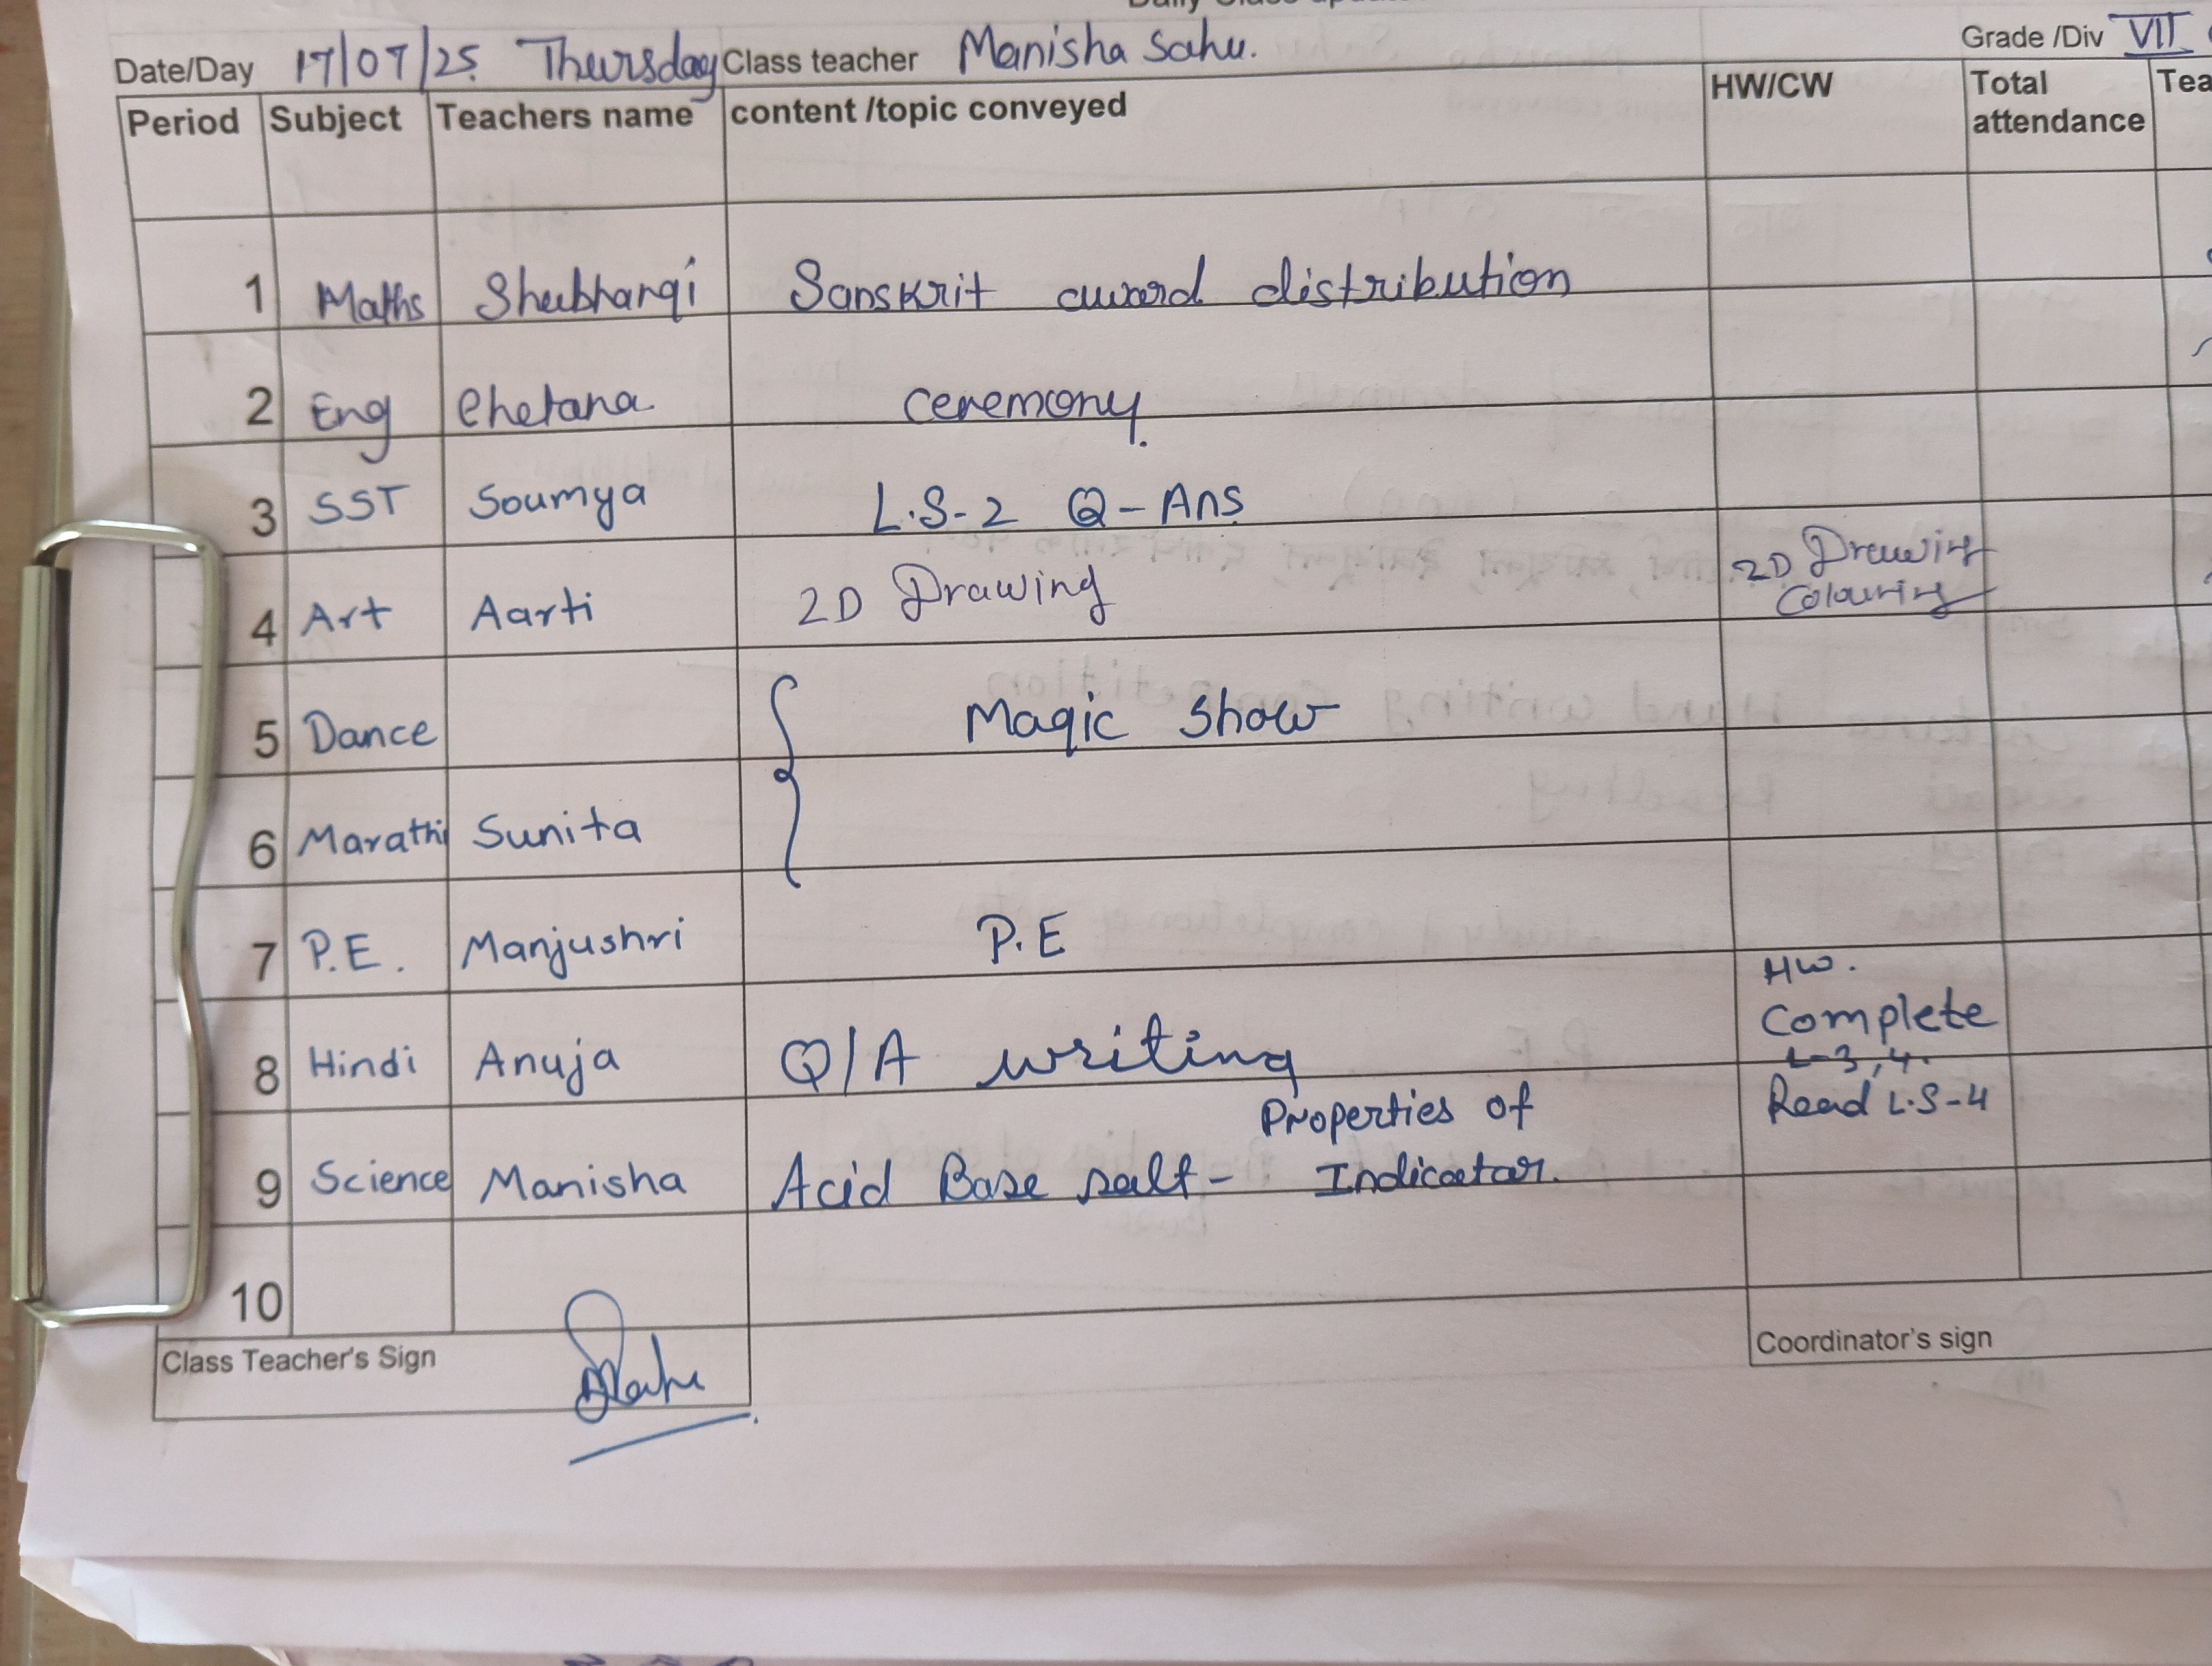 Date/Day 17/07/25 Thursday Class teacher Manisha Sahu. Grade /Div VII
Period Subject Teachers name content /topic conveyed HW/CW Total attendance Tea
1 Maths Shubhangi Sanskrit award distribution
2 Eng Chetana ceremony.
3 SST Soumya L.S-2 Q-Ans
4 Art Aarti 2D Drawing 2D Drawing Colouring
5 Dance Magic Show
6 Marathi Sunita
7 P.E. Manjushri P.E
8 Hindi Anuja Q/A writing HW. Complete L-3,4.
9 Science Manisha Acid Base salt- Properties of Indicator. Read L.S-4
10
Class Teacher's Sign Coordinator's sign